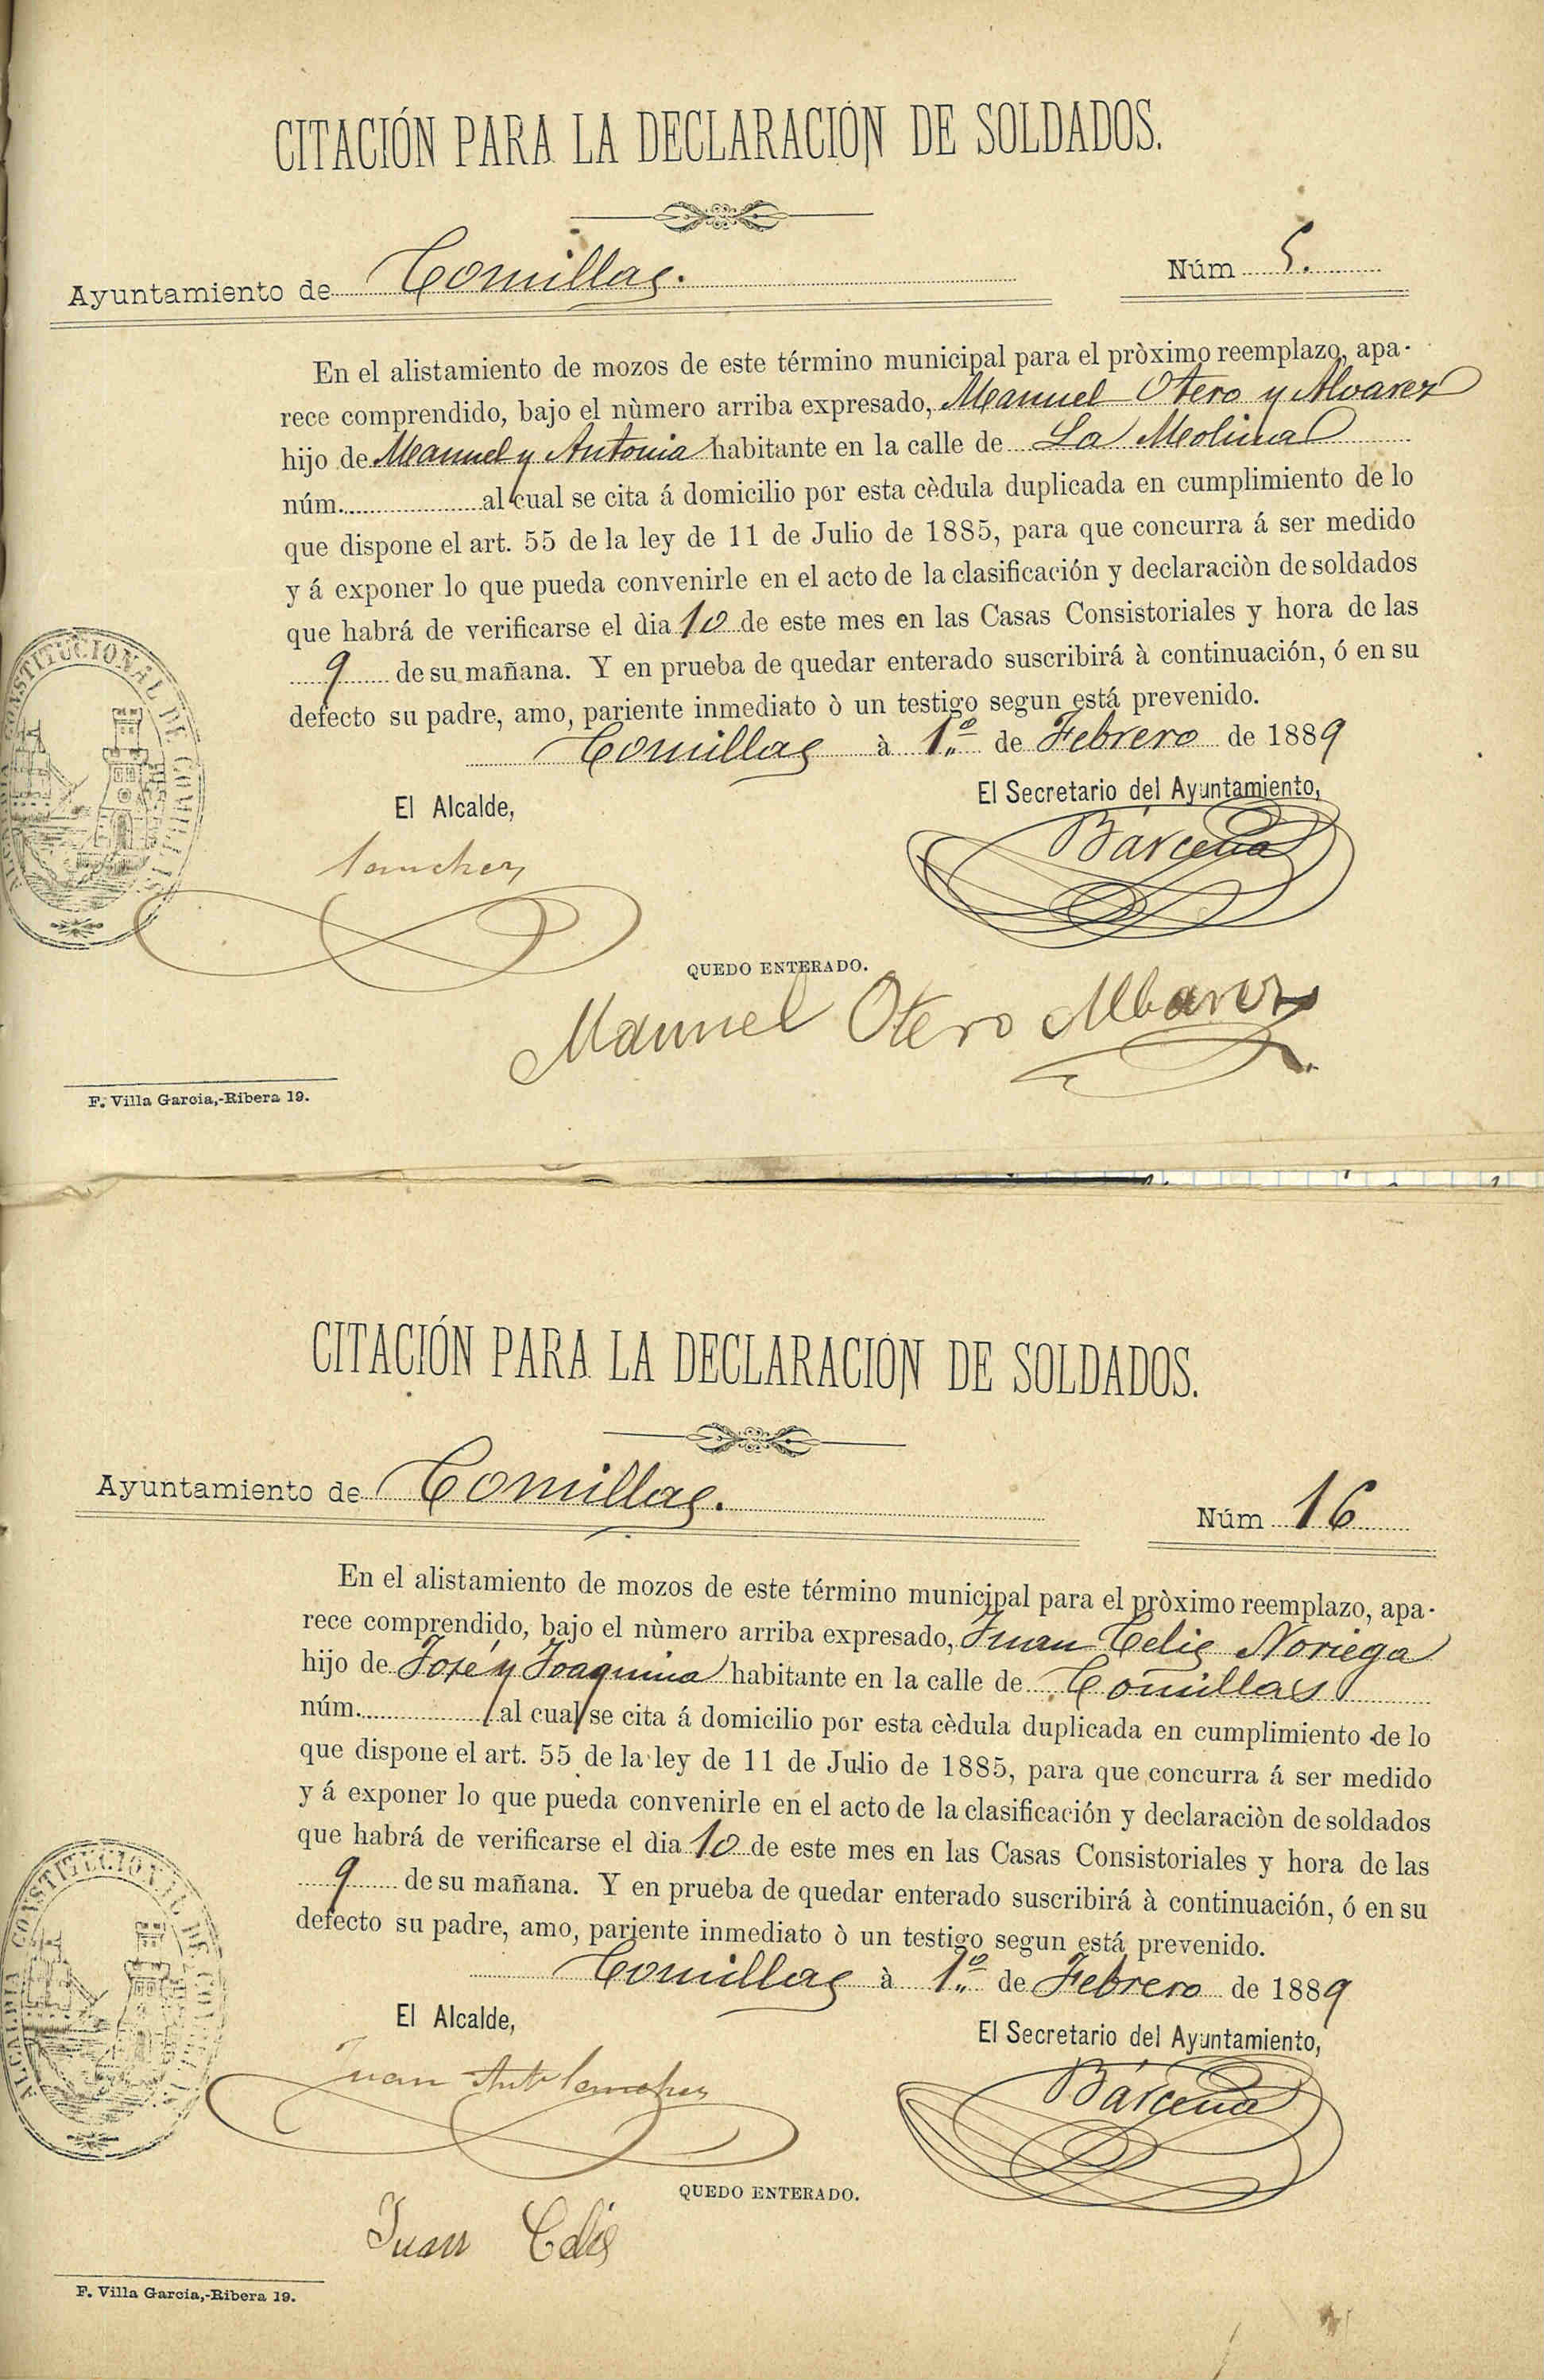 CITACIÓN PARA LA DECLARACIÓN DE SOLDADOS.
Ayuntamiento de Comillas. Núm 5.
En el alistamiento de mozos de este término municipal para el pròximo reemplazo, apa-
rece comprendido, bajo el nùmero arriba expresado, Manuel Otero y Alvarez
hijo de Manuel y Antonia habitante en la calle de La Molina
núm. al cual se cita á domicilio por esta cèdula duplicada en cumplimiento de lo
que dispone el art. 55 de la ley de 11 de Julio de 1885, para que concurra á ser medido
y á exponer lo que pueda convenirle en el acto de la clasificación y declaraciòn de soldados
que habrá de verificarse el dia 10 de este mes en las Casas Consistoriales y hora de las
9 de su mañana. Y en prueba de quedar enterado suscribirá à continuación, ó en su
defecto su padre, amo, pariente inmediato ò un testigo segun está prevenido.
Comillas à 1.º de Febrero de 1889
El Alcalde, El Secretario del Ayuntamiento,
Sanchez Bárcena
QUEDO ENTERADO.
Manuel Otero Albarez
F. Villa Garcia,-Ribera 19.
CITACIÓN PARA LA DECLARACIÓN DE SOLDADOS.
Ayuntamiento de Comillas. Núm 16
En el alistamiento de mozos de este término municipal para el pròximo reemplazo, apa-
rece comprendido, bajo el nùmero arriba expresado, Juan Celis Noriega
hijo de José y Joaquina habitante en la calle de Comillas
núm. al cual se cita á domicilio por esta cèdula duplicada en cumplimiento de lo
que dispone el art. 55 de la ley de 11 de Julio de 1885, para que concurra á ser medido
y á exponer lo que pueda convenirle en el acto de la clasificación y declaraciòn de soldados
que habrá de verificarse el dia 10 de este mes en las Casas Consistoriales y hora de las
9 de su mañana. Y en prueba de quedar enterado suscribirá à continuación, ó en su
defecto su padre, amo, pariente inmediato ò un testigo segun está prevenido.
Comillas à 1.º de Febrero de 1889
El Alcalde, El Secretario del Ayuntamiento,
Juan Ant Sanchez Bárcena
QUEDO ENTERADO.
Juan Celis
F. Villa Garcia,-Ribera 19.